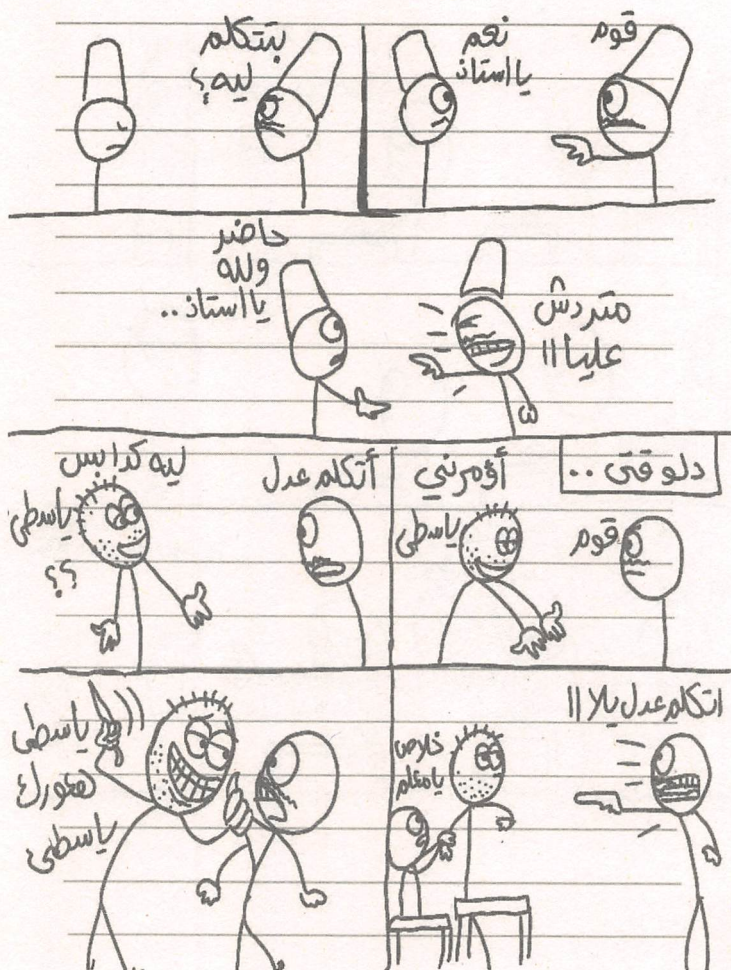 قوم
نعم
يا استاذ
بتتكلم
ليه؟
متردش
عليا !!
حاضر
ولله
يا استاذ..
دلوقتى ..
قوم
أؤمرني
ياسطى
أتكلم عدل
ليه كدا بس
ياسطى
؟؟
اتكلم عدل يالا !!
خلاص
يا معلم
ياسطى
هعورك
ياسطى